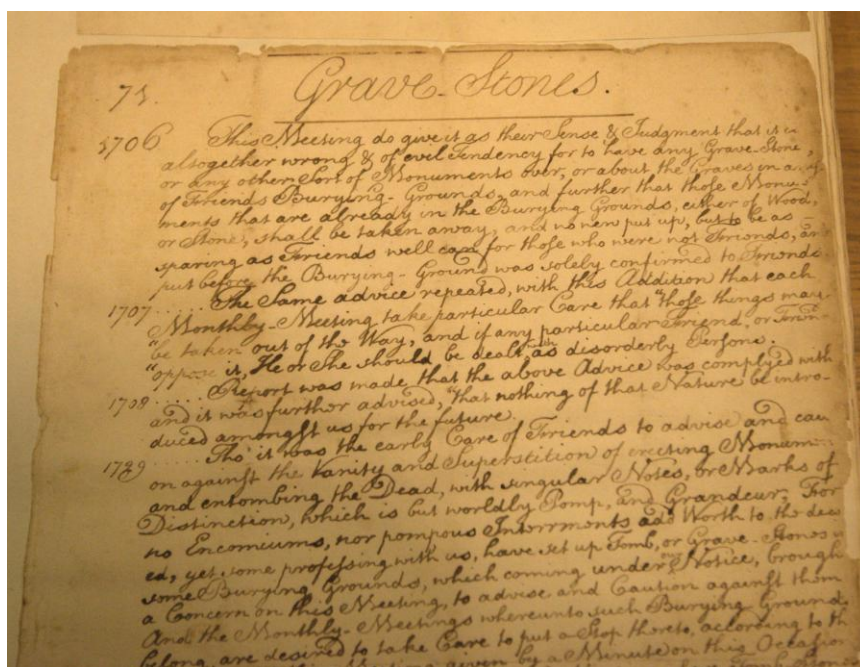 75.
Grave-Stones.
1706 This Meeting do give it as their Sense & Judgment that it is
altogether wrong & of evil Tendency for to have any Grave-Stone,
or any other Sort of Monuments over, or about the Graves in any
of Friends Burying-Grounds, and further that those Monu-
ments that are already in the Burying Grounds, either of Wood,
or Stone, shall be taken away, and no new put up, but to be as -
sparing as Friends well can for those who were not Friends, an
put before the Burying-Ground was solely confirmed to Friends.
1707 ...... The Same advice repeated, with this Addition that each
Monthly-Meeting take particular Care that "those things may
"be taken out of the Way, and if any particular Friend, or Frien-
"oppose it, He or She should be dealt with as disorderly Persons.
1708 ...... Report was made, that the above Advice was complyed with
and it was further advised, "that nothing of that Nature be intro-
duced amongst us for the future.
1729 ...... Tho' it was the early Care of Friends to advise and cau
on against the Vanity and Superstition of erecting Monumen
and entombing the Dead, with singular Notes, or Marks of
Distinction, which is but worldly Pomp, and Grandeur; For
no Encomiums, nor pompous Interrments add Worth to the dec
ed, yet some professing with us, have set up Tomb, or Grave-Stones in
some Burying Grounds, which coming under Notice, brough
a Concern on this Meeting, to advise and Caution against them
And the Monthly-Meetings whereunto such Burying Ground
belong, are desired to take Care to put a Stop thereto, according to th
given by a Minute on this Occasion